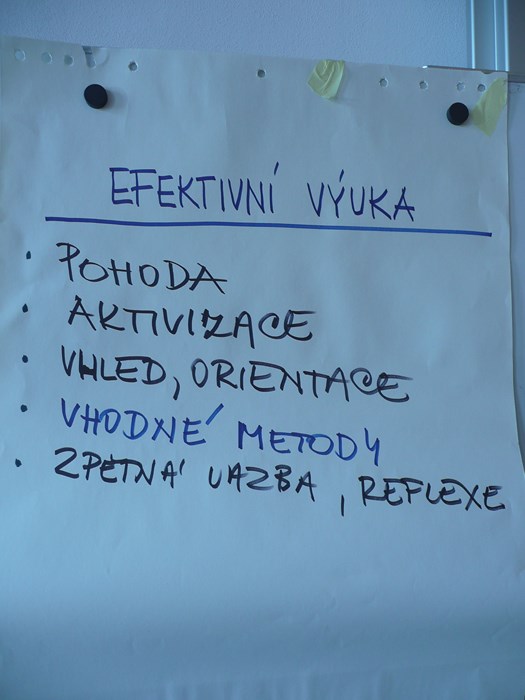 EFEKTIVNÍ VÝUKA
• POHODA
• AKTIVIZACE
• VHLED, ORIENTACE
• VHODNÉ METODY
• ZPĚTNÁ VAZBA, REFLEXE